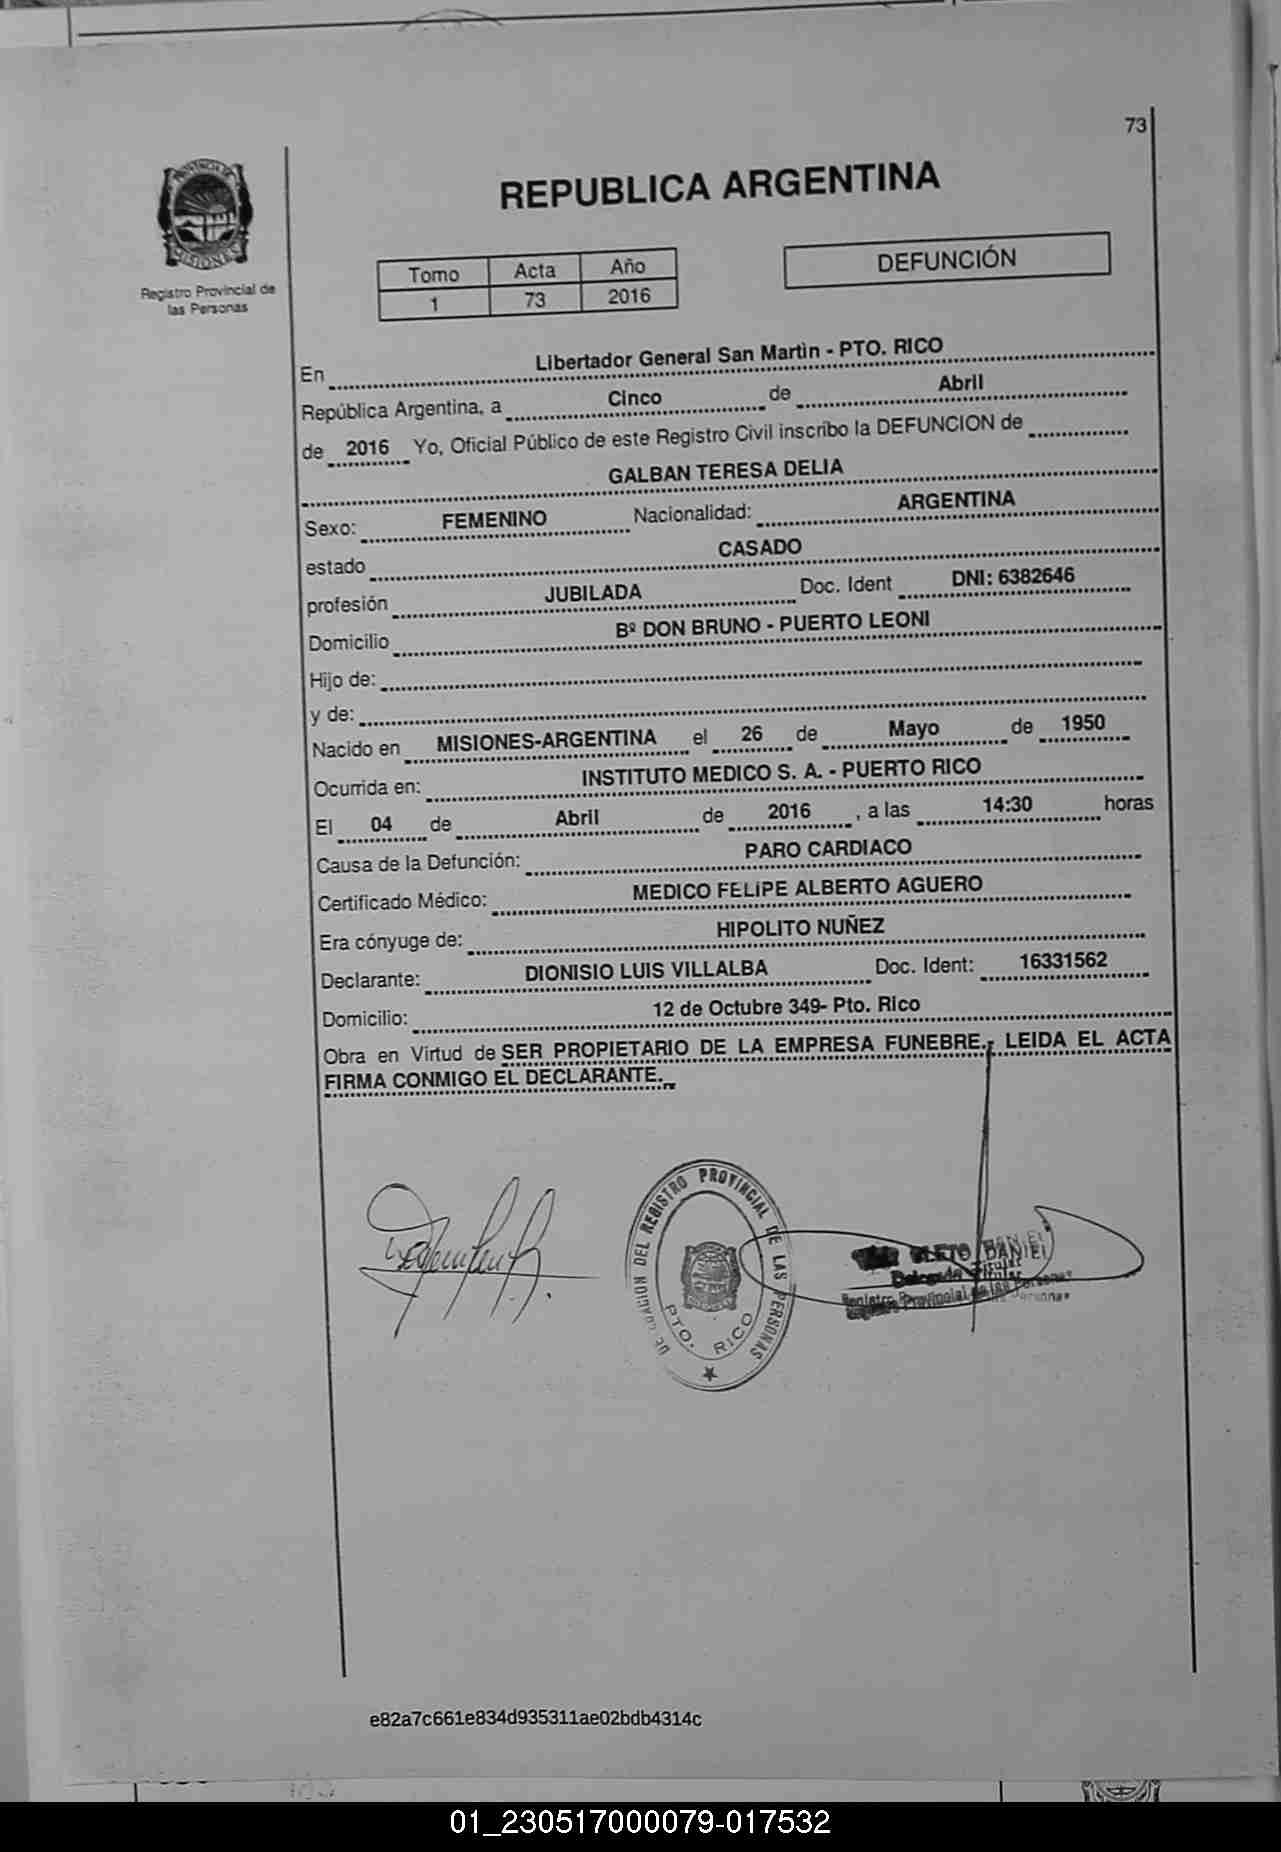 73
PROVINCIA DE
MISIONES
Registro Provincial de
las Personas
REPUBLICA ARGENTINA
Tomo Acta Año
1 73 2016
DEFUNCIÓN
En Libertador General San Martìn - PTO. RICO
República Argentina, a Cinco de Abril
de 2016 Yo, Oficial Público de este Registro Civil inscribo la DEFUNCION de
GALBAN TERESA DELIA
Sexo: FEMENINO Nacionalidad: ARGENTINA
estado CASADO
profesión JUBILADA Doc. Ident DNI: 6382646
Domicilio Bº DON BRUNO - PUERTO LEONI
Hijo de:
y de:
Nacido en MISIONES-ARGENTINA el 26 de Mayo de 1950
Ocurrida en: INSTITUTO MEDICO S. A. - PUERTO RICO
El 04 de Abril de 2016 , a las 14:30 horas
Causa de la Defunción: PARO CARDIACO
Certificado Médico: MEDICO FELIPE ALBERTO AGUERO
Era cónyuge de: HIPOLITO NUÑEZ
Declarante: DIONISIO LUIS VILLALBA Doc. Ident: 16331562
Domicilio: 12 de Octubre 349- Pto. Rico
Obra en Virtud de SER PROPIETARIO DE LA EMPRESA FUNEBRE.- LEIDA EL ACTA
FIRMA CONMIGO EL DECLARANTE.
DEL REGISTRO PROVINCIAL DE LAS PERSONAS
PTO. RICO
DANIEL
Delegado Titular
Registro Provincial de las Personas
e82a7c661e834d935311ae02bdb4314c
01_230517000079-017532